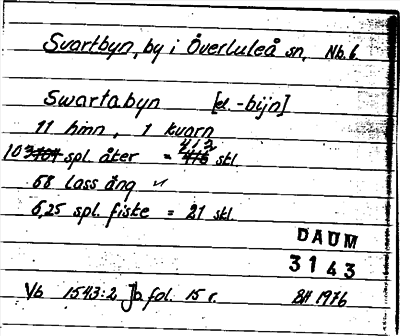 Svartbyn, by i Överluleå sn, Nb. 6.
Swartabyn [el. -bijn]
11 hmn, 1 kvarn
103 spl. åker = 412 skl
68 lass äng ✓
5,25 spl. fiske = 21 skl.
DAUM
3143
Vb 1543:2 Jb fol. 15 r. BH 1976